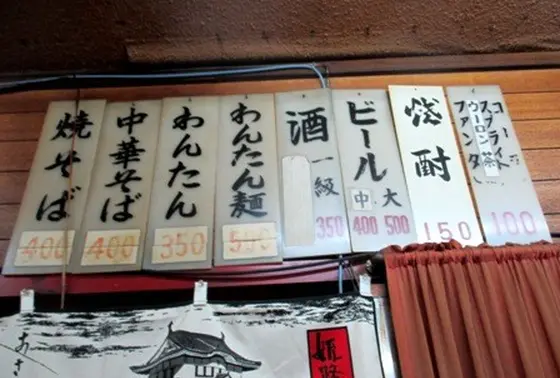 焼そば
400
中華そば
400
わんたん
350
わんたん麺
500
酒
一級
350
ビール
中 大
400 500
焼酎
150
コーラ
スプライト
ウーロン茶
ファンタ
100
あさ
姫路